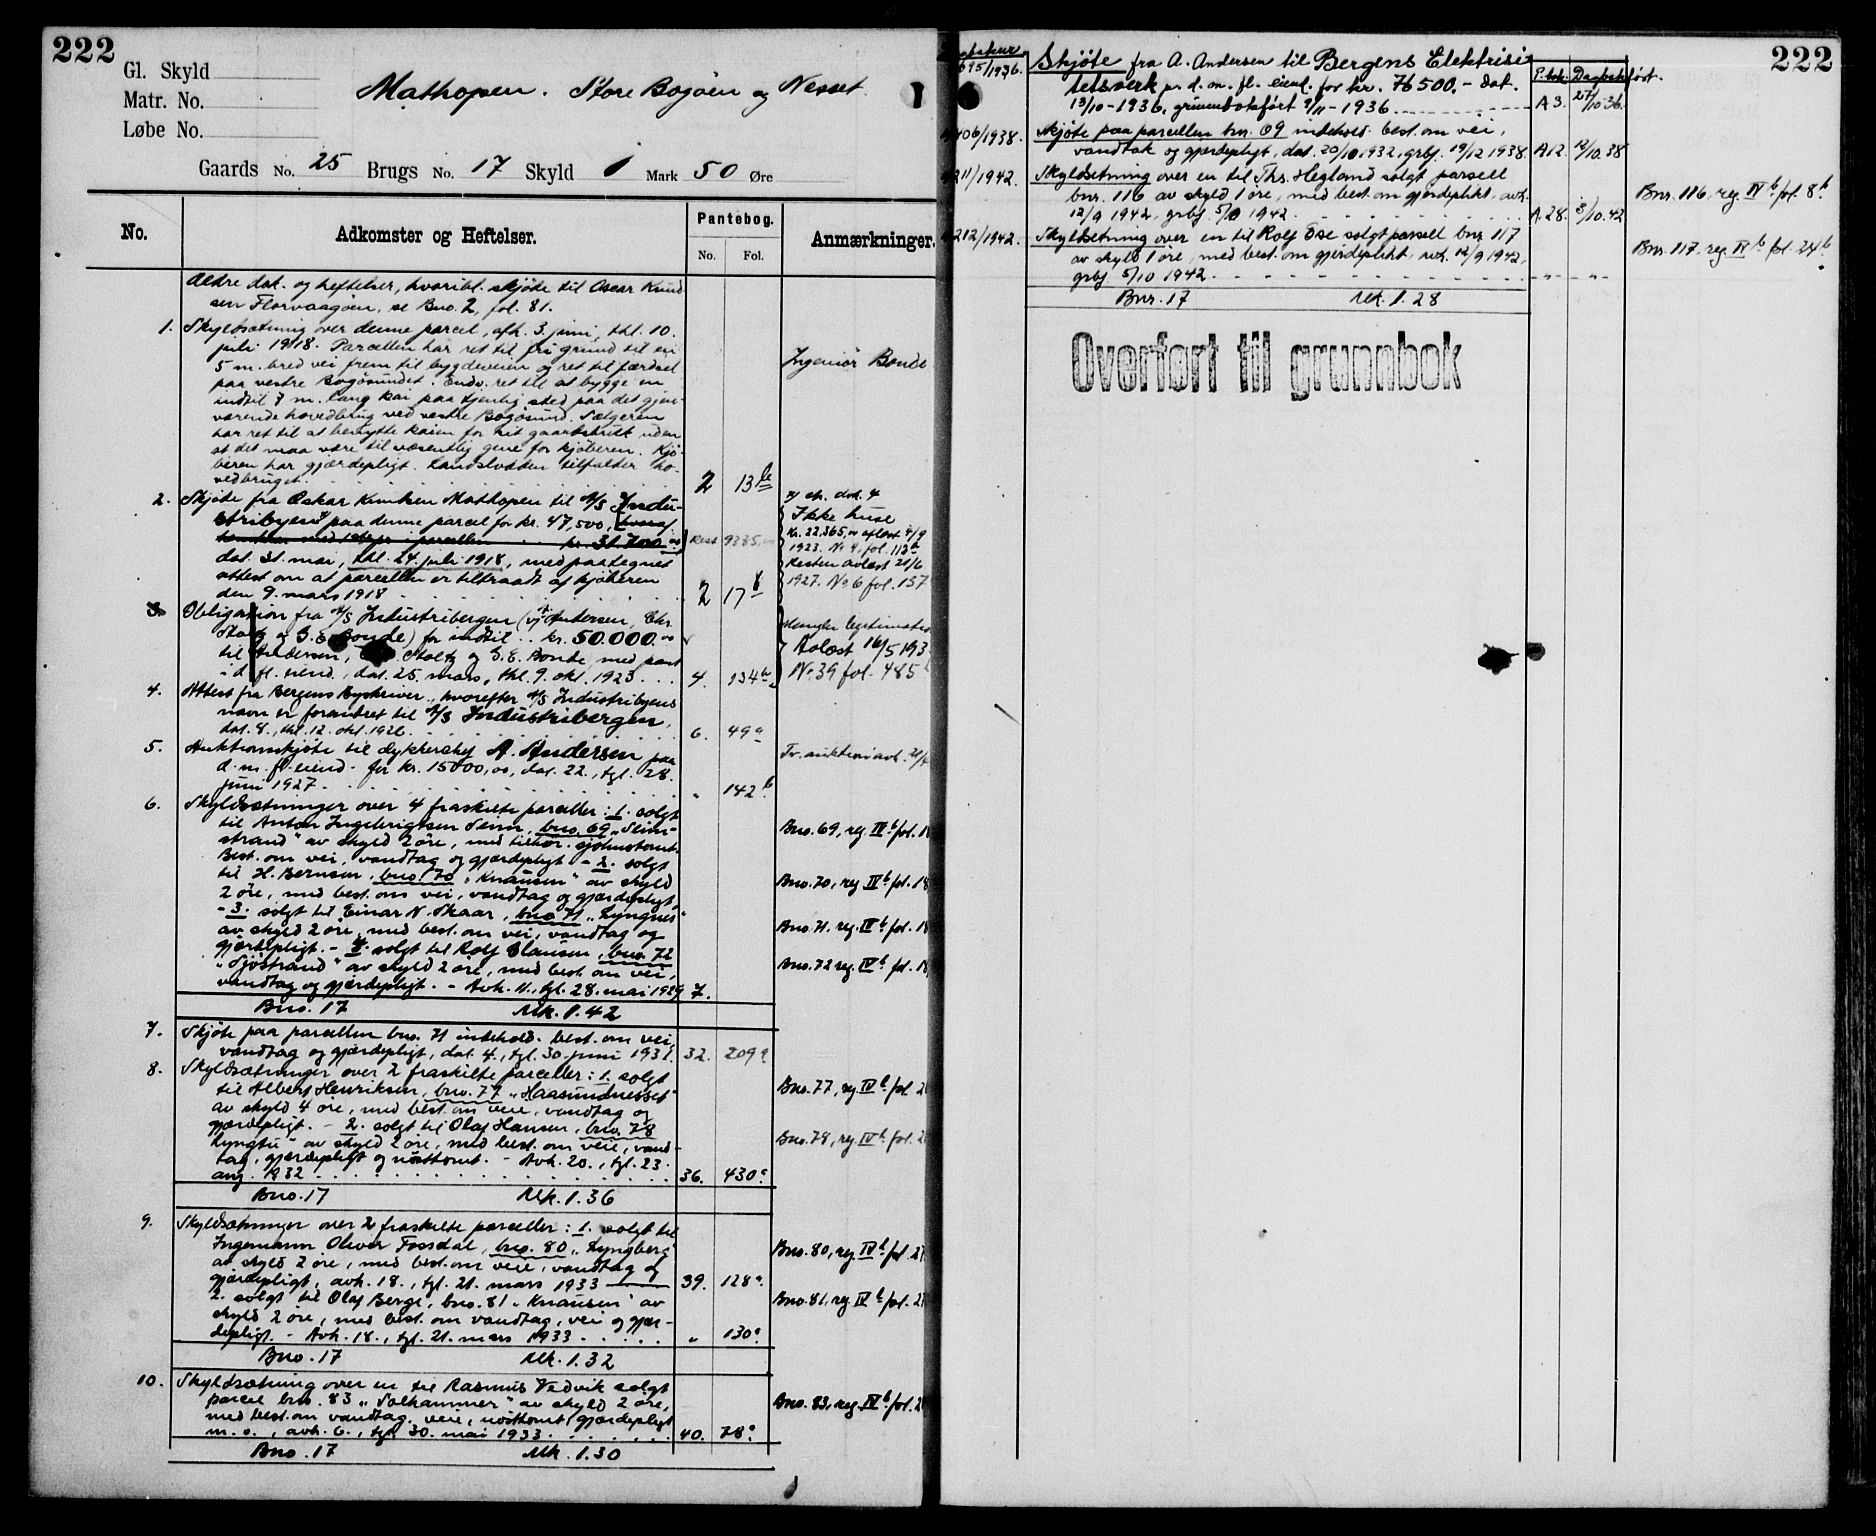 222
Gl. Skyld
Matr. No.
Løbe No.
Mathopen. Store Bogøen og Nesset
Gaards No. 25 Brugs No. 17 Skyld 1 Mark 50 Øre
No. Adkomster og Heftelser. Pantebog. No. Fol. Anmærkninger.
Ældre dok. og heftelser, hvoribl. skjøte til Oscar Knud-
sen Florvaagøen, se Bno. 2, fol. 81.
1. Skyldsætning over denne parcel, afh. 3. juni, thl. 10.
juli 1918. Parcellen har ret til fri grund til en
5 m. bred vei frem til bygdeveien og ret til færdsel
paa vestre Bogøsundet. Endv. ret til at bygge en
indtil 7 m. lang kai paa tjenlig sted paa det gjen-
værende hovedbrug ved vestre Bogøsund. Sælgeren
har ret til at benytte kaien for sit gaardsbruk uden
at det maa være til væsentlig gene for kjøberen. Kjø-
beren har gjærdepligt. Landslodden tilfalder ho-
vedbruget. 2 13 b
Ingeniør Bonde
2. Skjøte fra Oskar Knudsen Mathopen til A/S Indu-
stribyen paa denne parcel for kr. 47,500, hvoraf
kr. 31 700 Rest 9335,00
dat. 31. mai, thl. 24. juli 1918, med paategnet
attest om at parcellen er tiltraadt af kjøberen
den 9. mars 1918 2 17 b
Ikke huse
Kr. 22.365,00 aflæst 4/9
1923. No 4, fol. 113 b
Resten avlæst 21/6
1927. No 6 fol. 137
3. Obligation fra A/S Industribergen (v/ Andersen, Chr.
Stoltz og G. E. Bonde) for indtil kr. 50.000.00
til Andersen, Stoltz og G. E. Bonde, med pant
i d. fl. eiend., dat. 25. mars, thl. 9. okt. 1923 4. 134 b
Mangler legitimation
Avlæst 16/5 193
No 39 fol. 485 b
4. Attest fra Bergens Byskriver, hvorefter A/S Industribyens
navn er forandret til A/S Industribergen,
dat. 8., thl. 12. okt. 1926. 6. 49 a
5. Auktionsskjøte til dykkerchef A. Andersen paa
d. m. fl. eiend. for kr. 15000,00, dat. 22., tgl. 28.
juni 1927. " 142 b
Tv. auktion avh. 21/4
6. Skyldsætninger over 4 fraskilte parceller: 1. solgt
til Anton Ingebrigtsen Seim, bno. 69 „Seim-
strand" av skyld 2 øre, med tilhør. sjøhustomt.
Best. om vei, vandtag og gjærdepligt - 2. solgt
til H. Berntsen, bno. 70 „Knausen" av skyld
2 øre, med best. om vei, vandtag og gjærdepligt,
- 3. solgt til Einar N. Skaar, bno 71 „Lyngnes"
av skyld 2 øre, med best. om vei, vandtag og
gjærdepligt. - 4. solgt til Rolf Clausen, bno. 72
„Sjøstrand" av skyld 2 øre, med best. om vei,
vandtag og gjærdepligt. - Avh. 11., tgl. 28. mai 1929 7.
Bno. 69, reg. IV b fol. 18
Bno. 70, reg IV b fol. 18
Bno. 71, reg. IV b fol. 18
Bno. 72 reg. IV b fol. 18
Bno. 17 Mk. 1.42
7. Skjøte paa parcellen bno. 71 indehold. best. om vei,
vandtag og gjærdepligt, dat. 4., tgl. 30. juni 1931. 32. 209 a
8. Skyldsætninger over 2 fraskilte parceller: 1. solgt
til Albert Henriksen, bno. 77 „Haasundnesset"
av skyld 4 øre, med best. om veie, vandtag og
gjærdepligt. - 2. solgt til Olaf Hansen, bno. 78
Lyngtu" av skyld 2 øre, med best. om veie, vand-
tag, gjærdepligt og nøsttomt. - Avh. 20., tgl. 23.
aug. 1932 36. 430 a
Bno. 77, reg IV b fol. 2
Bno. 78, reg IV b fol. 2
Bno. 17 Mk. 1.36
9. Skyldsætninger over 2 fraskilte parceller: 1. solgt til
Ingemann Oliver Fossdal, bno. 80 „Lyngberg"
av skyld 2 øre, med best. om veie, vandtag og
gjærdepligt, avh. 18., tgl. 21. mars 1933 39. 128 a
2. solgt til Olaf Berge, bno. 81 „Knausen" av
skyld 2 øre, med best. om vandtag, vei og gjær-
depligt. - Avh. 18., tgl. 21. mars 1933 " 130 a
Bno. 80, reg IV b fol. 21
Bno. 81, reg IV b fol. 21
Bno. 17 Mk. 1.32
10. Skyldsætning over en til Rasmus Vedvik solgt
parcel bno. 83 „Solhammer" av skyld 2 øre,
med best. om vandtag, veie, nøsttomt, gjærdepligt
m. v., avh. 6., tgl. 30. mai 1933. 40. 78 a
Bno. 83, reg IV b fol. 2
Bno. 17 Mk. 1.30
222
695/1936. Skjöte fra A. Andersen til Bergens Elektrisi-
tetsverk på d. m. fl. eiend. for kr. 76 500,- dat.
13/10-1936, grunnbokført 9/11-1936
P.bok. Dagbokført.
A 3. 27/10 36.
406/1938. Skjöte paa parcellen bnr. 69 indehold. best. om vei,
vandtak og gjerdeplygt, dat. 20/10 1932, grbf. 19/12 1938. A 12. 12/10.38
211/1942. Skyldsetning over en til Ths. Hegland solgt parsell
bnr. 116 av skyld 1 øre, med best. om gjerdeplikt, avh.
12/9 1942, grbf. 5/10 1942. A. 28. 3/10.42
Bnr. 116, reg. IV b fol. 8 b
212/1942. Skyldsetning over en til Rolf Øse solgt parsell bnr 117
av skyld 1 øre, med best. om gjerdeplikt, avh. 12/9 1942,
grbf. 5/10 1942 " "
Bnr. 117, reg. IV b fol. 24 b
Bnr. 17 Mk. 1.28
Overført til grunnbok